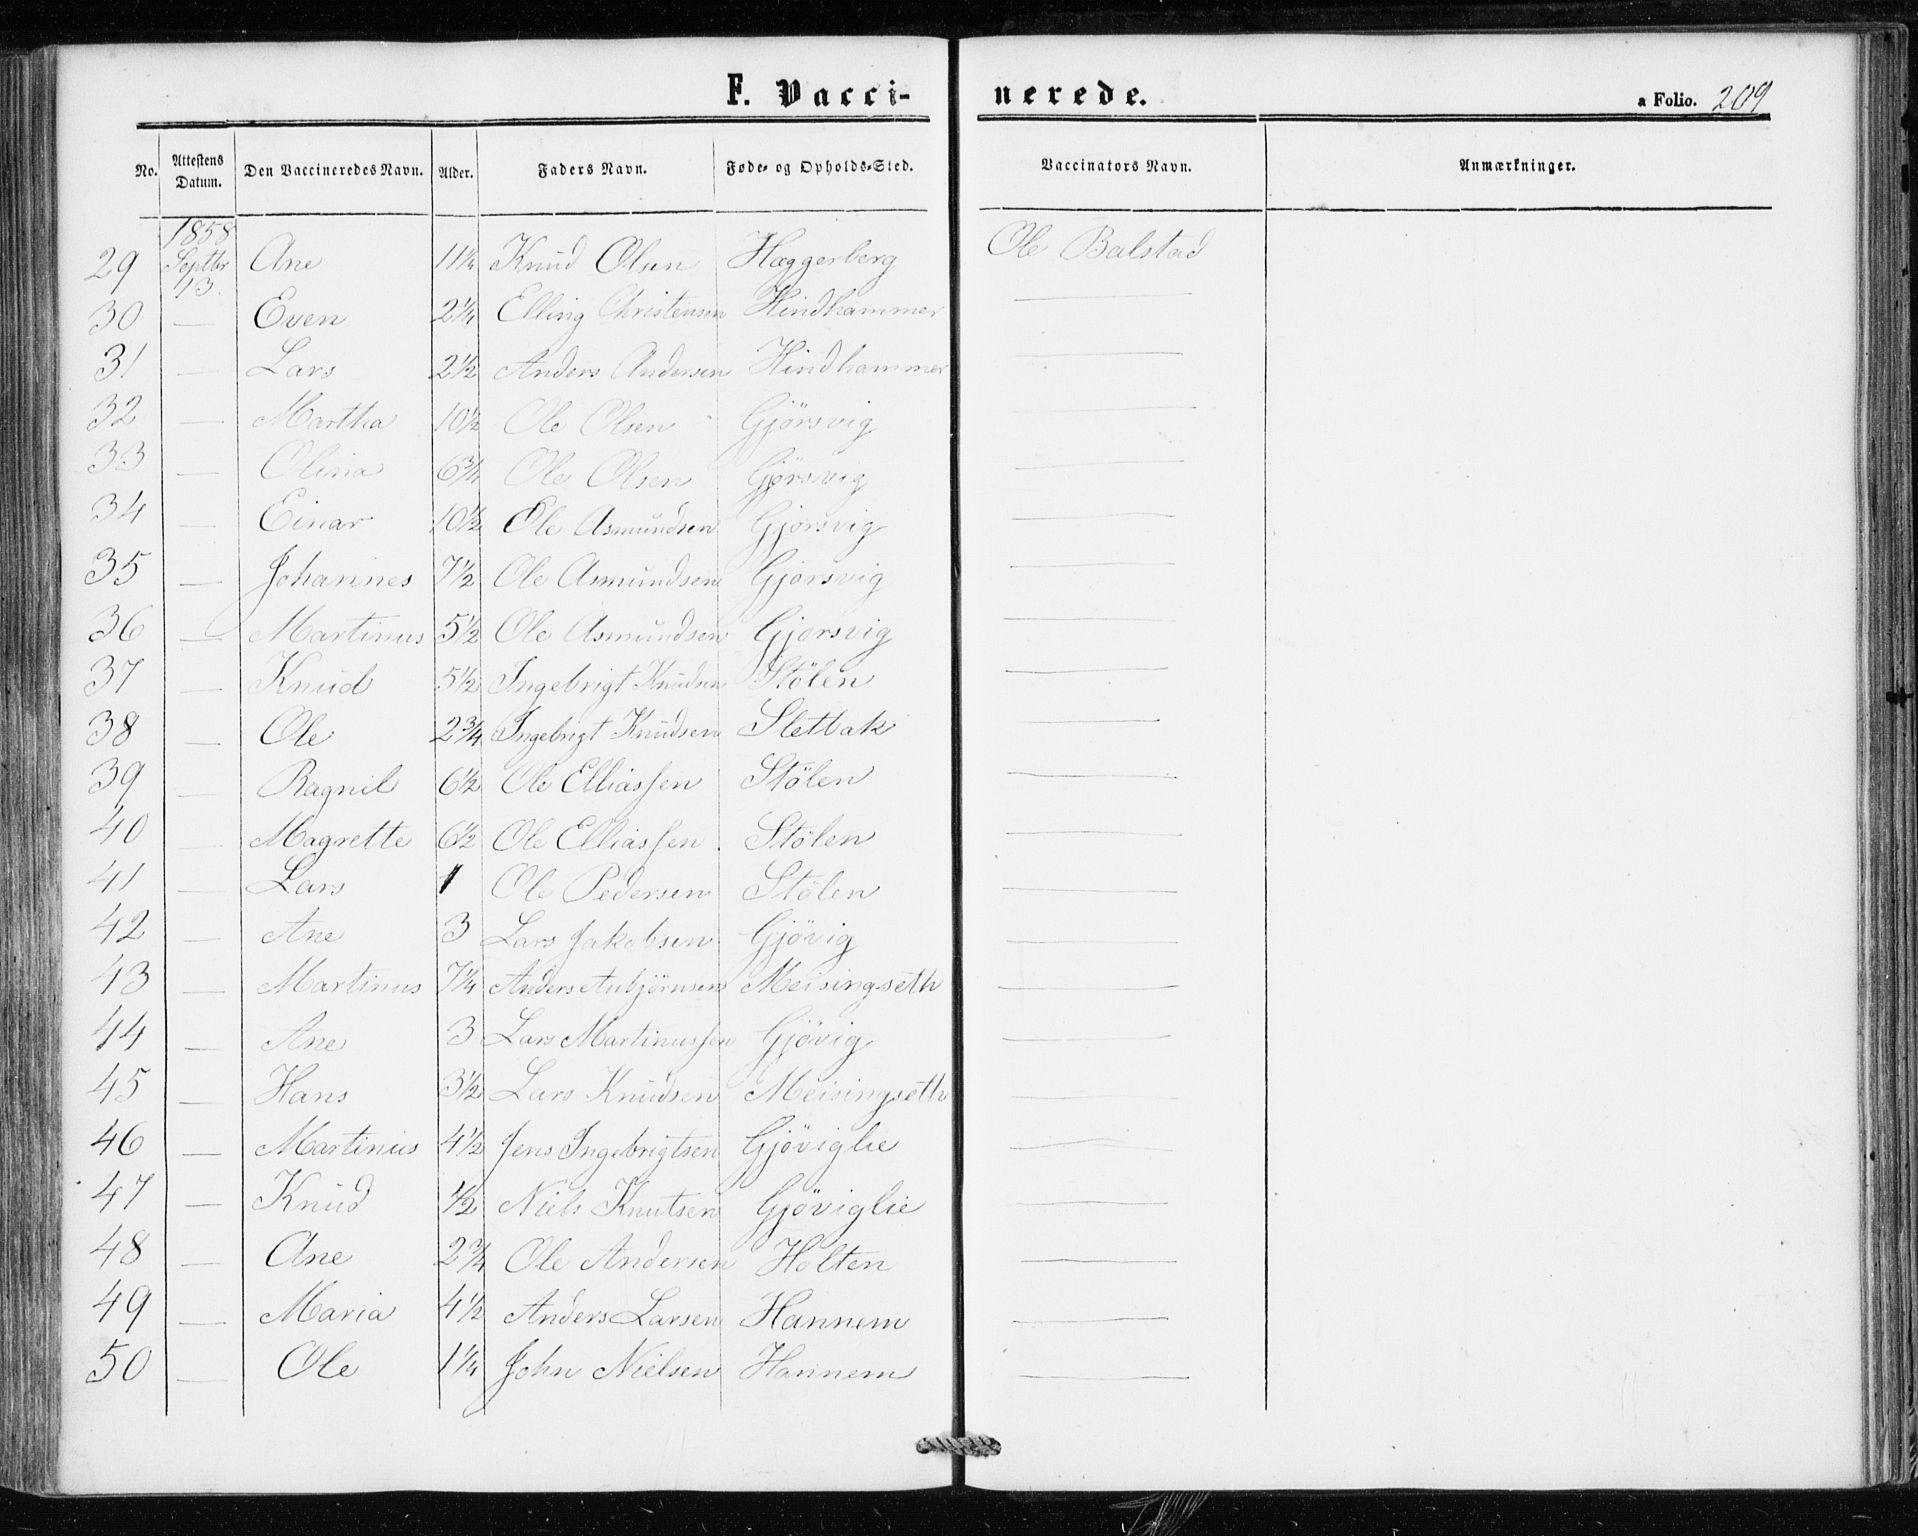 F. Vacci- nerede. a Folio. 209
No. Attestens Datum. Den Vaccineredes Navn. Alder. Faders Navn. Føde- og Opholds-Sted. Vaccinators Navn. Anmærkninger.
1858
29 Septbr 13. Ane 11 1/4 Knud Olsen Hæggerberg Ole Balstad
30 — Even 2 1/4 Elling Christensen Hindhammer —
31 — Lars 2 1/2 Anders Andersen Hindhammer —
32 — Martha 10 1/2 Ole Olsen Gjörsvig —
33 — Olina 6 3/4 Ole Olsen Gjörsvig —
34 — Einar 10 1/2 Ole Asmundsen Gjörsvig —
35 — Johannes 7 1/2 Ole Asmundsen Gjörsvig —
36 — Martinus 5 1/2 Ole Asmundsen Gjorsvig —
37 — Knud 5 1/2 Ingebrigt Knudsen Stölen —
38 — Ole 2 3/4 Ingebrigt Knudsen Sletbak —
39 — Ragnil 6 1/2 Ole Elliassen Stölen —
40 — Magrette 6 1/2 Ole Elliassen Stölen —
41 — Lars 1 Ole Pedersen Stölen —
42 — Ane 3 Lars Jakobsen Gjövig —
43 — Martinus 7 1/4 Anders Anbjörnsen Meisingseth —
44 — Ane 3 Lars Martinussen Gjövig —
45 — Hans 3 1/2 Lars Knudsen Meisingseth —
46 — Martinus 4 1/2 Jens Ingebrigtsen Gjöviglie —
47 — Knud 1/2 Niels Knutsen Gjöviglie —
48 — Ane 2 3/4 Ole Andersen Holten —
49 — Maria 4 1/2 Anders Larsen Hannem —
50 — Ole 1 1/4 John Nielsen Hannem —